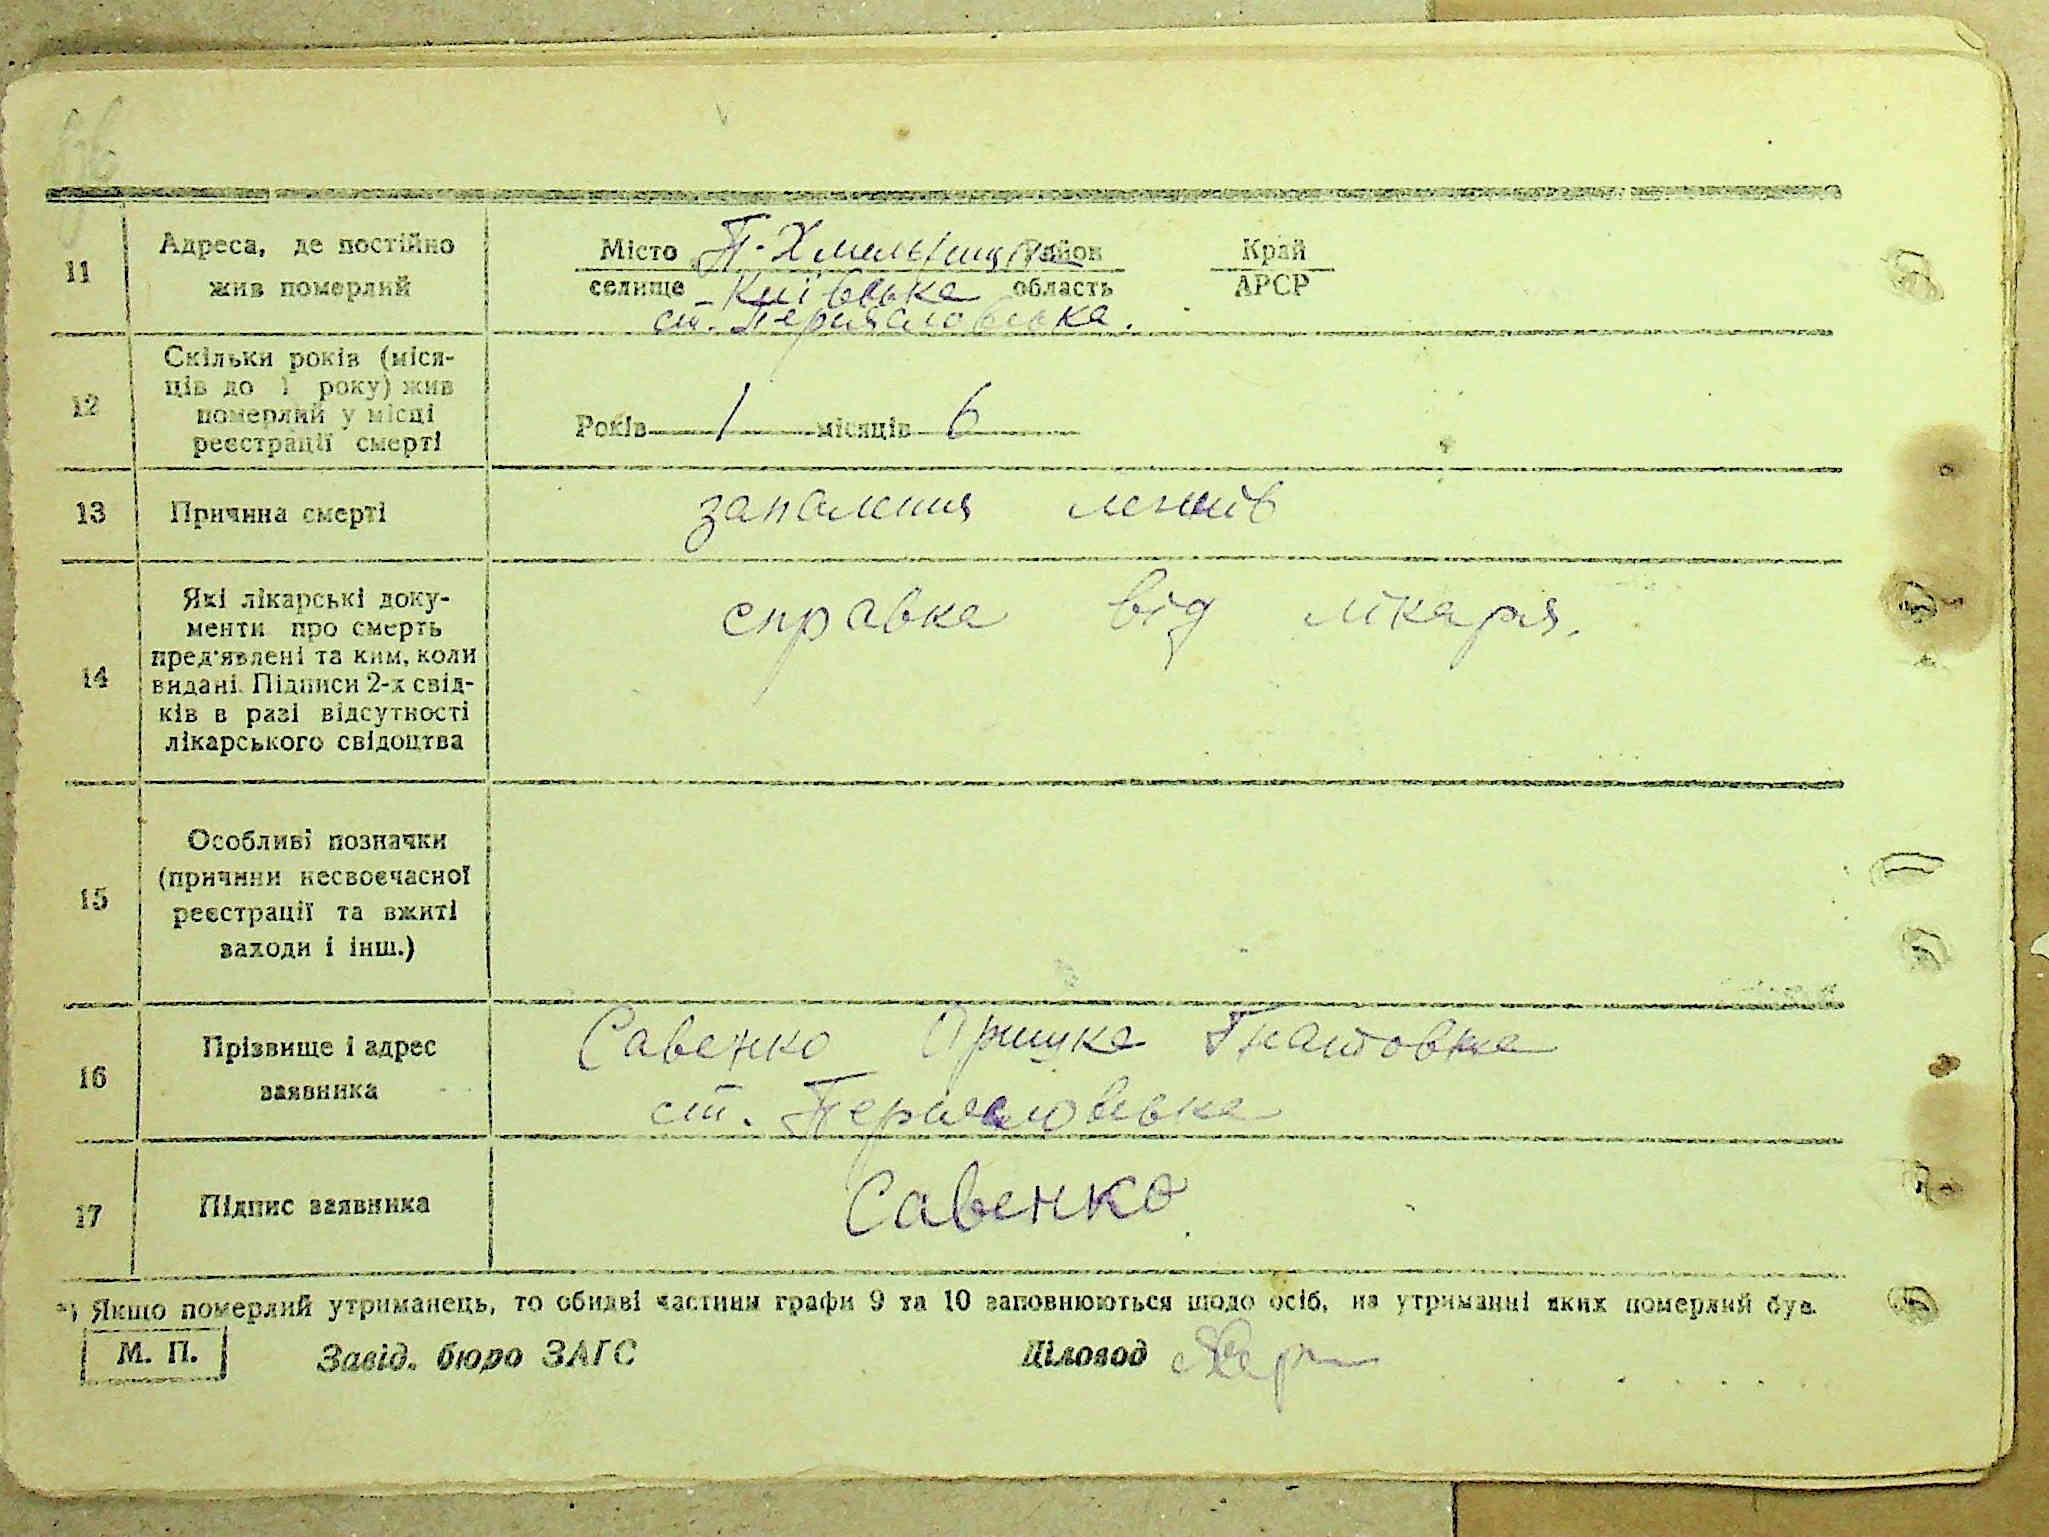 66
11
Адреса, де постійно
жив померлий
Місто П-Хмельницьк Район Край
селище Київська область АРСР
ст. Переяславська.
12
Скільки років (міся-
ців до 1 року) жив
померлий у місці
реєстрації смерті
Років 1 місяців 6
13
Причина смерті
запалення легенів
14
Які лікарські доку-
менти про смерть
пред'явлені та ким, коли
видані. Підписи 2-х свід-
ків в разі відсутності
лікарського свідоцтва
справка від лікаря.
15
Особливі позначки
(причини несвоєчасної
реєстрації та вжиті
заходи і інш.)
16
Прізвище і адрес
заявника
Савенко Оришка Гнатовна
ст. Переяславська
17
Підпис заявника
Савенко
*) Якщо померлий утриманець, то обидві частини графи 9 та 10 заповнюються щодо осіб, на утриманні яких померлий був.
М. П.
Завід. бюро ЗАГС
Діловод